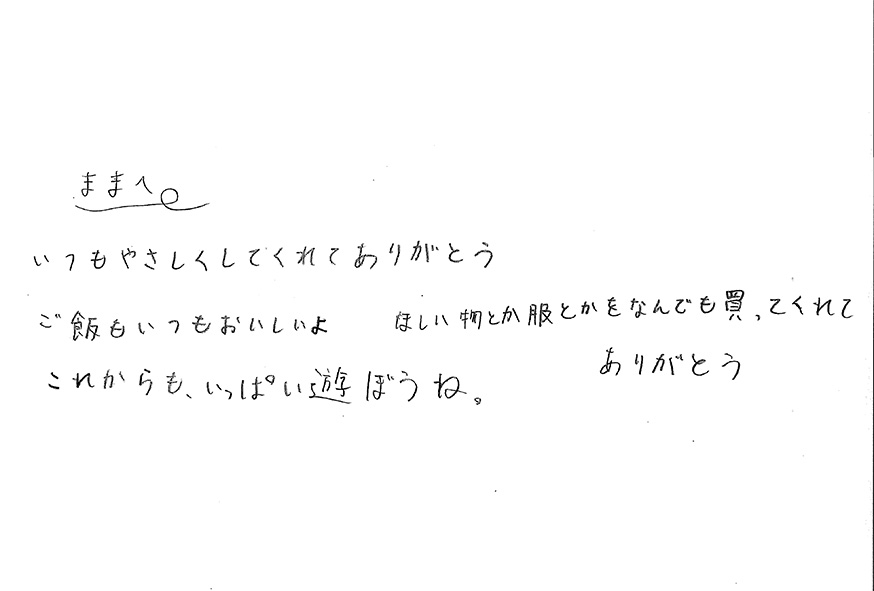 ままへ
いつもやさしくしてくれてありがとう
ご飯もいつもおいしいよ
ほしい物とか服とかをなんでも買ってくれて
ありがとう
これからも、いっぱい遊ぼうね。